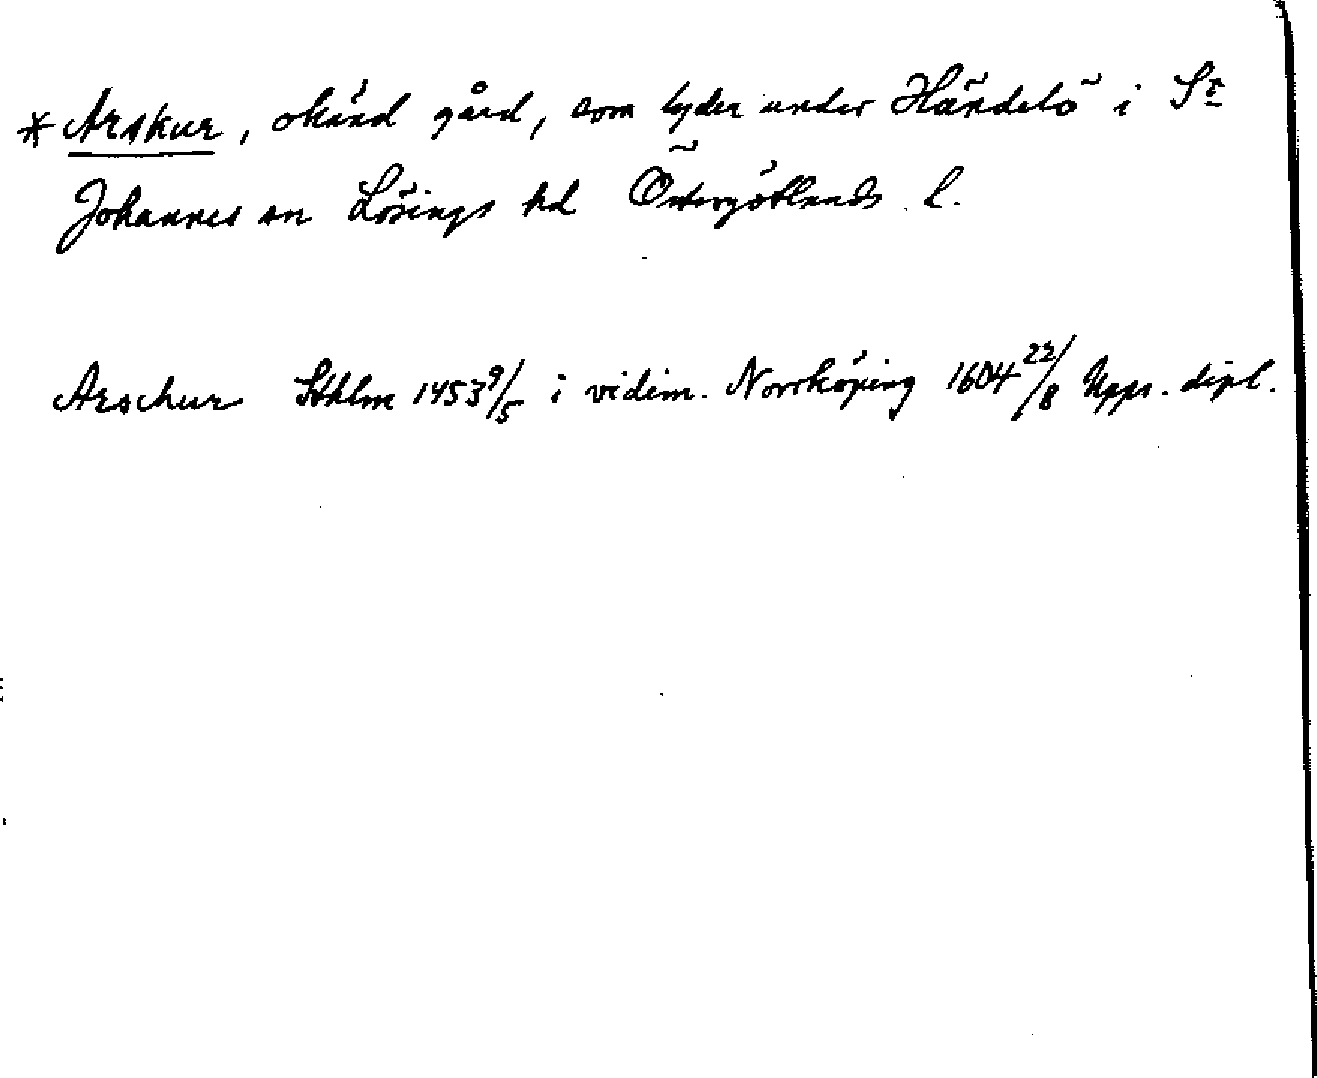 * Arskur, okänd gård, som lyder under Händelö i St
Johannes sn Lösings hd Östergötlands l.
Arschur Sthlm 1453 9/5 i vidim. Norrköping 1604 22/8 Upps. dipl.